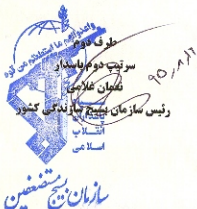 واعدوا لهم ما استطعتم من قوة
طرف دوم
سرتیپ دوم پاسدار
نعمان غلامی
رئیس سازمان بسیج سازندگی کشور
پاسداران
انقلاب
اسلامی
سازمان بسیج مستضعفین